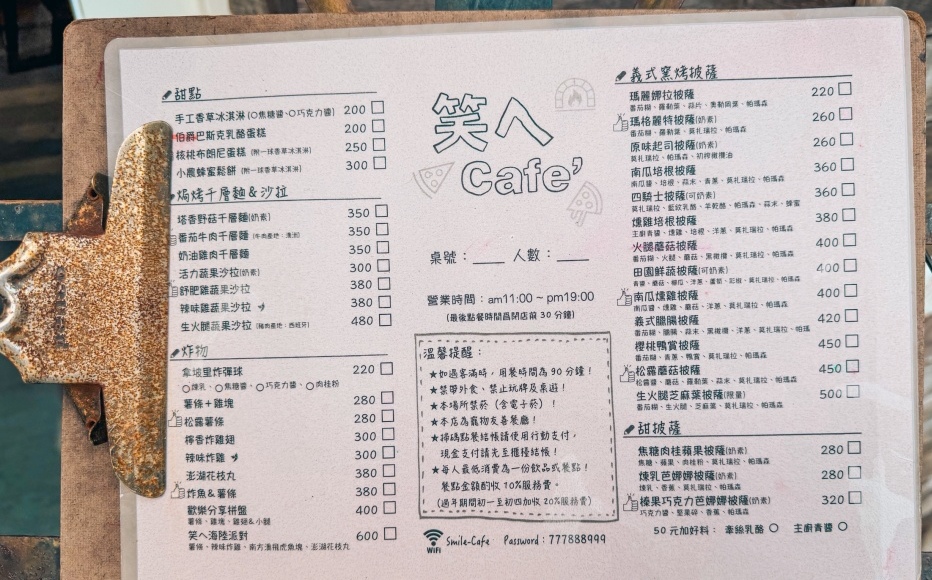 甜點
手工香草冰淇淋(○焦糖醬○巧克力醬) 200
伯爵巴斯克乳酪蛋糕 200
核桃布朗尼蛋糕(附一球香草冰淇淋) 250
小農蜂蜜鬆餅(附一球香草冰淇淋) 300
焗烤千層麵&沙拉
塔香野菇千層麵(奶素) 350
番茄牛肉千層麵(牛肉產地:澳洲) 350
奶油雞肉千層麵 350
活力蔬果沙拉(奶素) 300
舒肥雞蔬果沙拉 380
辣味雞蔬果沙拉 380
生火腿蔬果沙拉(豬肉產地:西班牙) 480
炸物
拿坡里炸彈球 220
○煉乳、○焦糖醬、○巧克力醬、○肉桂粉
薯條+雞塊 280
松露薯條 280
檸香炸雞翅 300
辣味炸雞 300
澎湖花枝丸 380
炸魚&薯條 380
歡樂分享拼盤 400
薯條、雞塊、雞翅&小腿
笑へ海陸派對 600
薯條、辣味炸雞、南方澳飛虎魚塊、澎湖花枝丸
笑へ
Cafe'
桌號: 人數:
營業時間:am11:00~pm19:00
(最後點餐時間爲閉店前30分鐘)
溫馨提醒:
★如遇客滿時,用餐時間為90分鐘!
★禁帶外食、禁止玩牌及桌遊!
★本場所禁菸(含電子菸)!
★本店為寵物友善餐廳!
★掃碼點餐結帳請使用行動支付,
現金支付請先至櫃檯結帳!
★每人最低消費為一份飲品或餐點!
餐點金額酌收10%服務費。
(過年期間初一至初四加收20%服務費)
WiFi Smile-Cafe Password:777888999
義式窯烤披薩
瑪麗娜拉披薩 220
番茄糊、蘿勒葉、蒜片、奧勒岡葉、帕瑪森
瑪格麗特披薩(奶素) 260
番茄糊、蘿勒葉、莫札瑞拉、帕瑪森
原味起司披薩(奶素) 260
莫札瑞拉、帕瑪森、初榨橄欖油
南瓜培根披薩 360
南瓜醬、培根、蒜末、青蔥、莫札瑞拉、帕瑪森
四騎士披薩(可奶素) 360
莫札瑞拉、藍紋乳酪、羊乾酪、帕瑪森、蒜末、蜂蜜
燻雞培根披薩 380
主廚青醬、燻雞、培根、洋蔥、莫札瑞拉、帕瑪森
火腿蘑菇披薩 400
番茄糊、火腿、蘑菇、黑橄欖、莫札瑞拉、帕瑪森
田園鮮蔬披薩(可奶素) 400
青醬、蘑菇、櫛瓜、洋蔥、蘆筍、玨椒、莫札瑞拉、帕瑪森
南瓜燻雞披薩 400
南瓜醬、燻雞、蘑菇、洋蔥、莫札瑞拉、帕瑪森
義式臘腸披薩 420
番茄糊、臘腸、蒜末、黑橄欖、洋蔥、莫札瑞拉、帕瑪
櫻桃鴨賞披薩 450
番茄糊、青蔥、鴨賞、莫札瑞拉、帕瑪森
松露蘑菇披薩 450
松露醬、蘑菇、蘿勒葉、蒜末、莫札瑞拉、帕瑪森
生火腿芝麻葉披薩(限量) 500
番茄糊、生火腿、芝麻葉、莫札瑞拉、帕瑪森
甜披薩
焦糖肉桂蘋果披薩(奶素) 280
焦糖、蘋果、肉桂粉、莫札瑞拉、帕瑪森
煉乳芭娜娜披薩(奶素) 280
煉乳、香蕉、莫札瑞拉、帕瑪森
榛果巧克力芭娜娜披薩(奶素) 320
巧克力醬、堅果碎、香蕉、帕瑪森
50元加好料: 牽絲乳酪○ 主廚青醬○